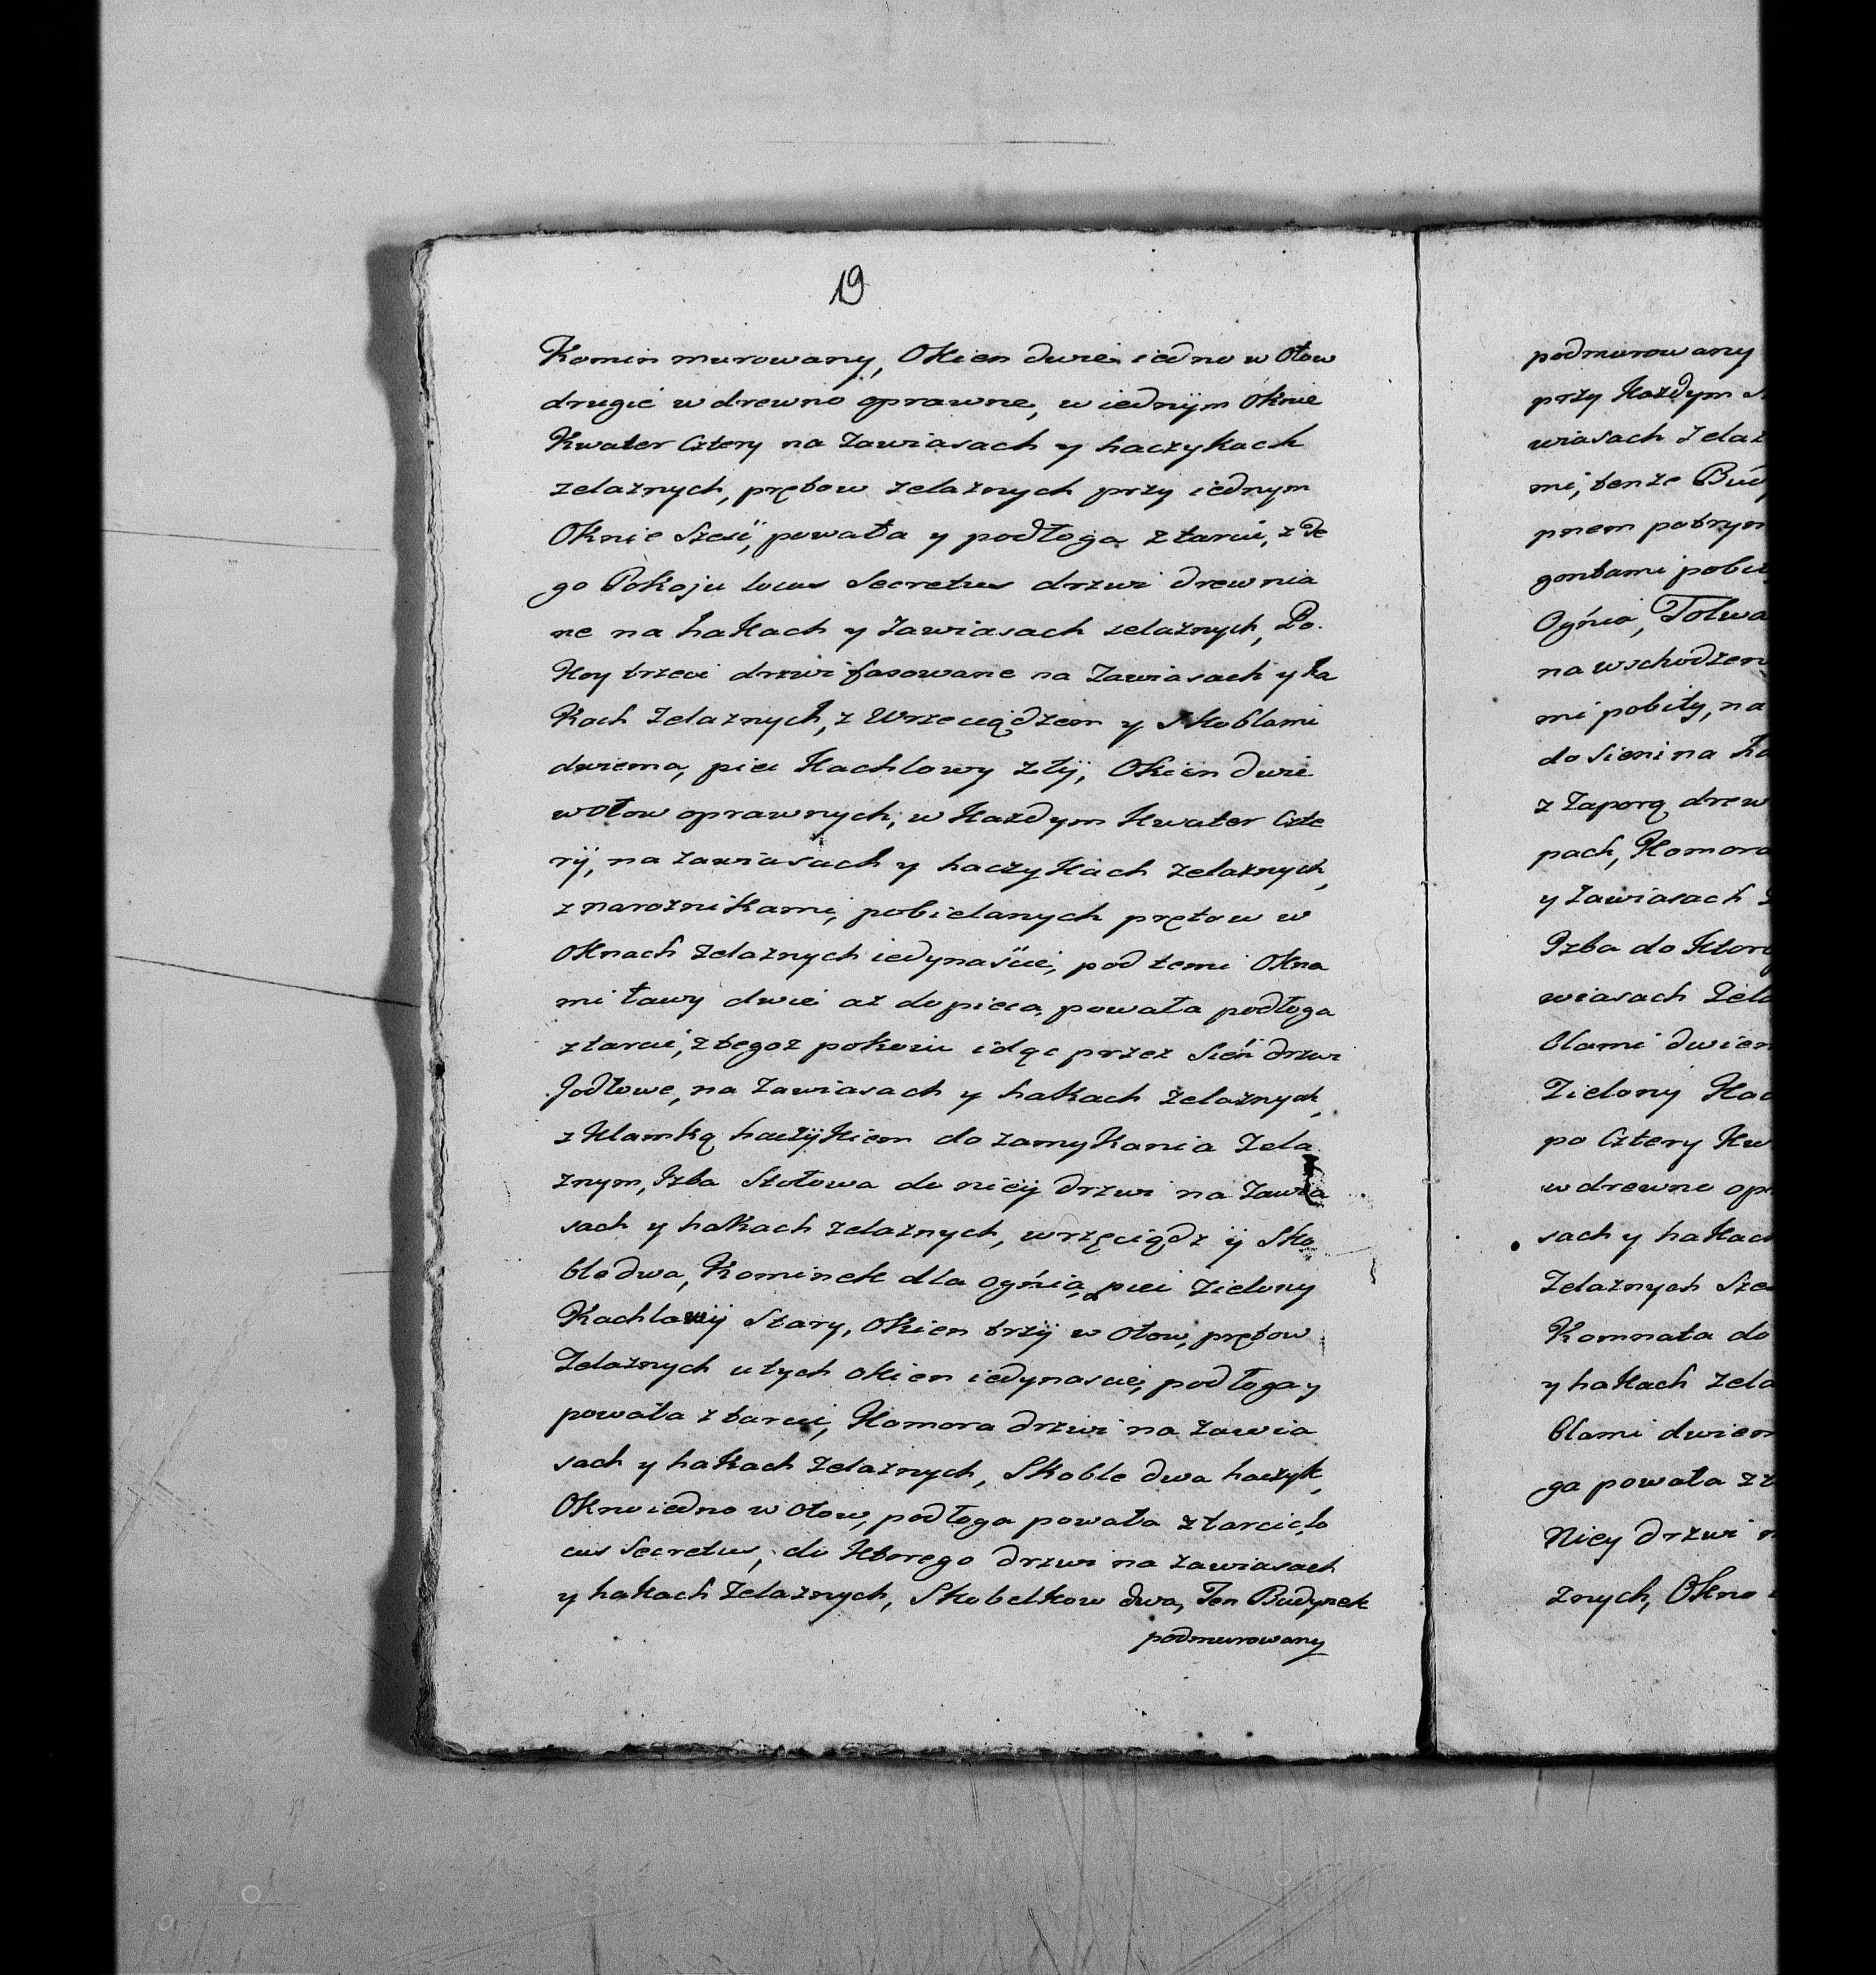 19
Komin murowany, Okien dwie iedno w Ołow
drugie w drewno oprawne, w iednÿm Oknie
Kwater Cztery na Zawiasach y haczykach
zelaznych, prętow zelaznych przy iednym
Oknie Sześć, powała y podłoga z tarcic, z Te
go Pokoju locus Secretus drzwi drewnia
ne na hakach y Zawiasach zelaznych, Po
Koy trzeci drzwi fasowane na Zawiasach y ha
Kach Zelaznych, z Wrzeciądzem y Skoblami
dwiema, piec Kachlowy złÿ, Okien dwie
w Ołow oprawnych, w Kazdym Kwater Czte
rÿ, na zawiasach y haczykach zelaznych,
z naroznikami, pobielanych prętow w
Oknach Zelaznych iedynaście, pod temi Okna
mi ławy dwie az do pieca, powała podłoga
z tarcic, z tegoz pokoiu idąc przez Sień drzwi
Jodłowe, na Zawiasach y hakach Zelaznych,
z Klamką haczÿkiem do zamykania Zela
znym, Izba Stołowa do nieÿ drzwi na Zawia
sach y hakach zelaznych, wrzęciądz ÿ Sko
ble dwa, Kominek dla ognia, piec Zielony
Kachlowÿ Stary, Okien trzÿ w Ołow, prętow
Zelaznych u tych okien iedynascie, podłoga y
powała z tarcic, Komora drzwi na Zawia
sach y hakach Zelaznych, Skoble dwa haczyk,
Okno iedno w Ołow, podłoga powała z tarcic, lo
cus Secretus, do Ktorego drzwi na zawiasach
y hakach Zelaznych, Skobelkow dwa, Ten Budynek
podmurowany
podmurowany
przy Kazdym
wiasach Zelaz
mi, tenze Bud
pnem potrym
gontami pobi
Ognia, Tolwa
na wschodzen
mi pobity, na
do Sieni na ha
z Zaporą drew
pach, Komora
y Zawiasach
Izba do Ktor
wiasach Zela
blami dwiem
Zielony Kac
po Cztery Kw
w drewno opr
sach y hakach
Zelaznych Sze
Komnata do
y hakach zela
blami dwiem
ga powała z t
Niey drzwi n
znych, Okno